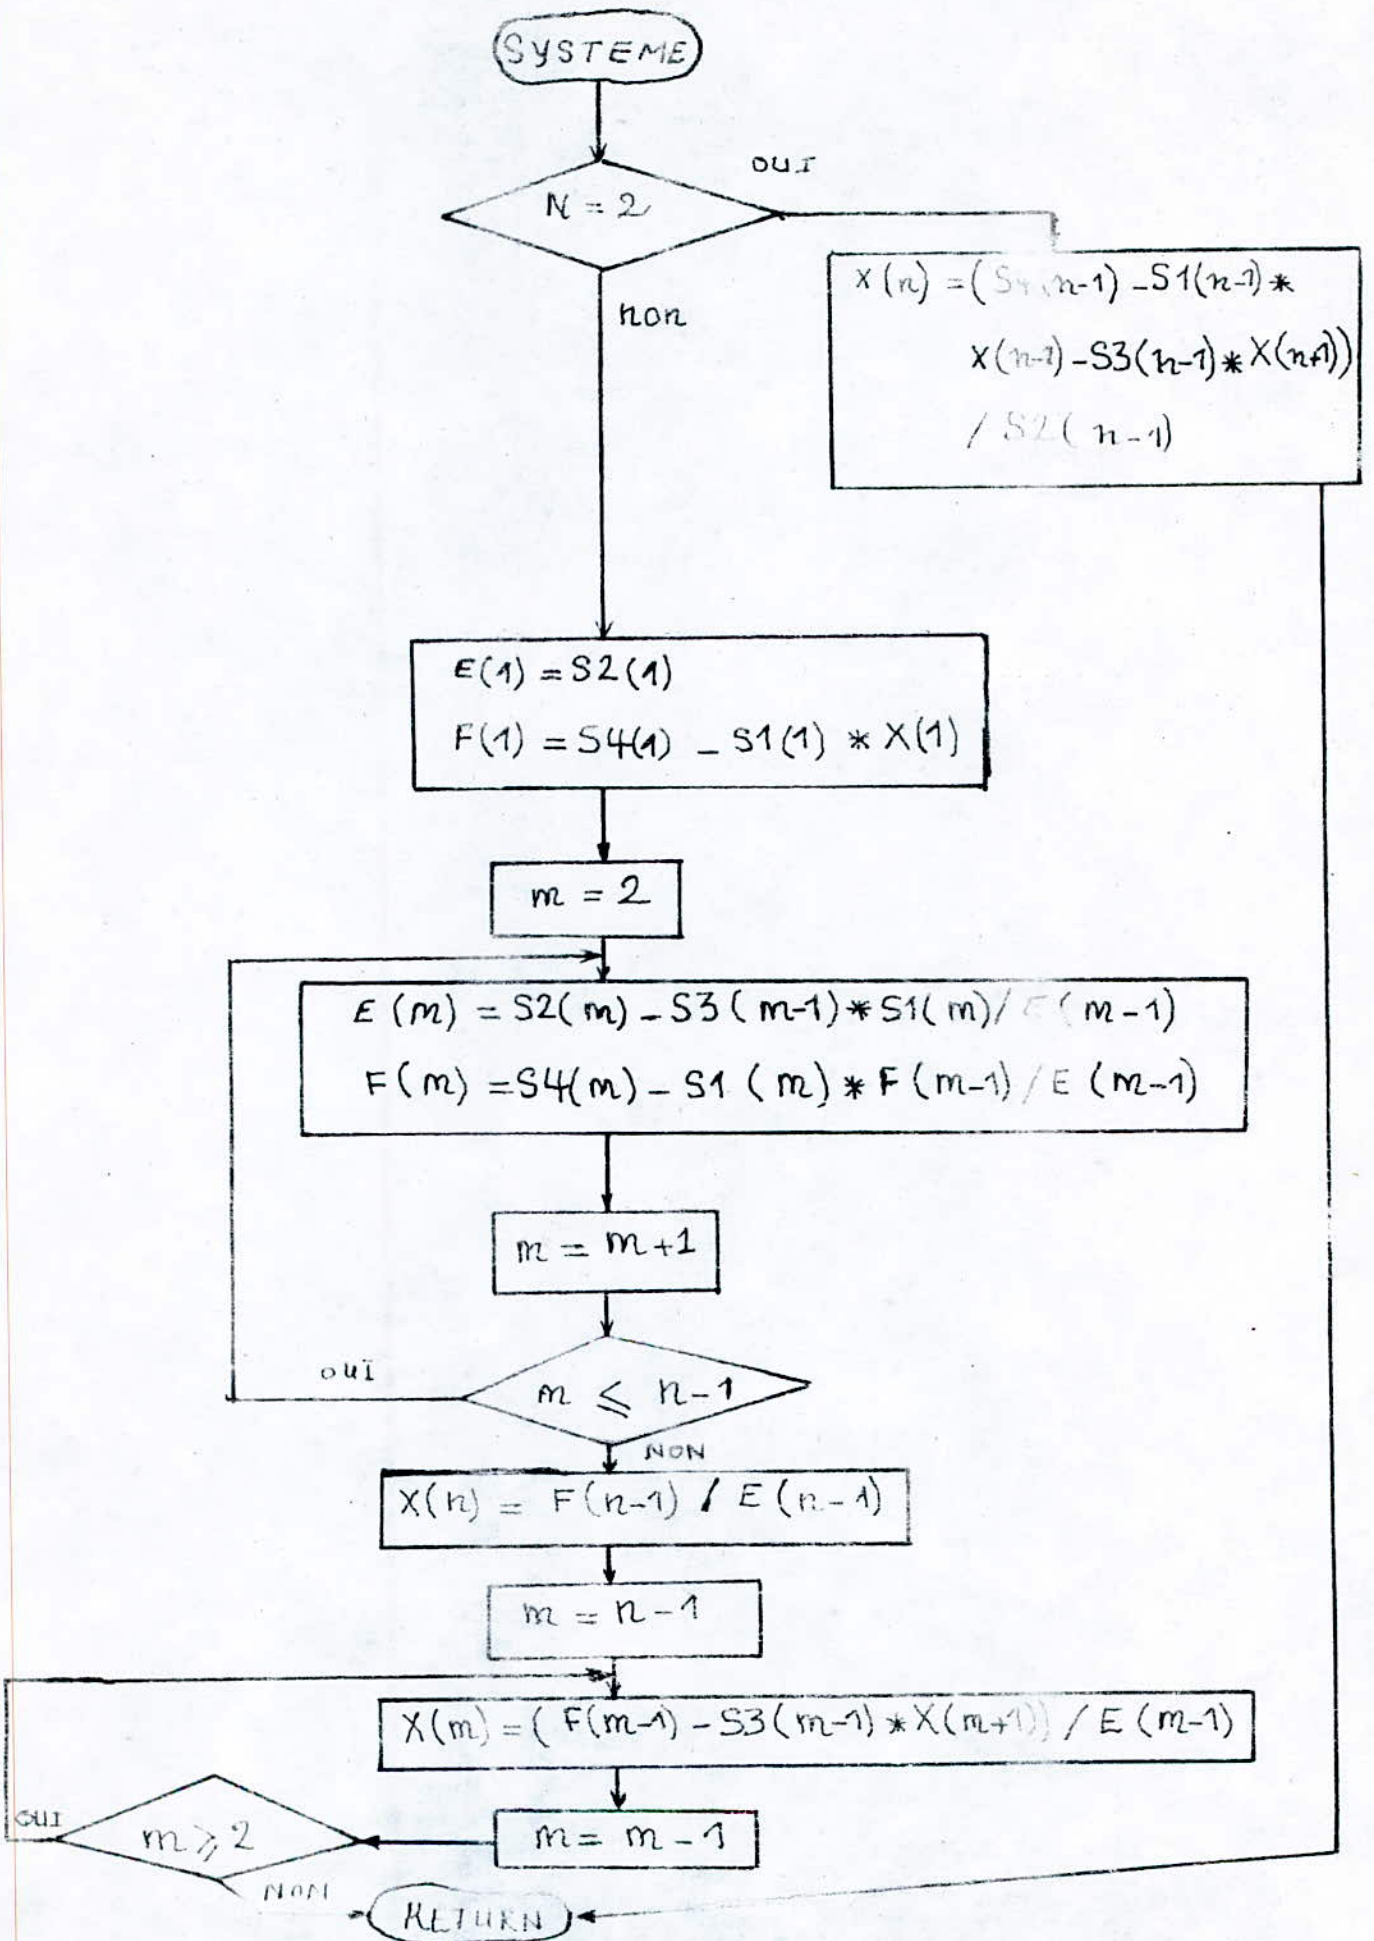 SYSTEME
OUI
N = 2
X(n) = (S4(n-1) - S1(n-1) *
X(n-1) - S3(n-1) * X(n+1))
/ S2(n-1)
non
E(1) = S2(1)
F(1) = S4(1) - S1(1) * X(1)
m = 2
E(m) = S2(m) - S3(m-1) * S1(m) / E(m-1)
F(m) = S4(m) - S1(m) * F(m-1) / E(m-1)
m = m+1
OUI
m ≤ n-1
NON
X(n) = F(n-1) / E(n-1)
m = n-1
X(m) = (F(m-1) - S3(m-1) * X(m+1)) / E(m-1)
OUI
m ≥ 2
m = m-1
NON
RETURN